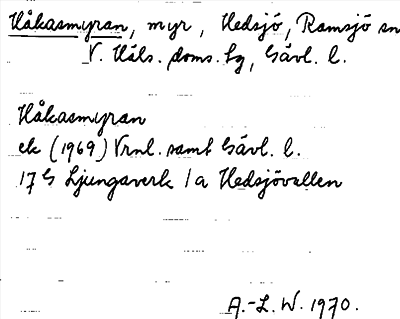 Håkasmyran, myr, Hedsjö, Ramsjö sn
V. Häls. doms. sg, Gävl. l.
Håkasmyran
ek (1969) Vrnl. samt Gävl. l.
17 G Ljungaverk 1a Hedsjövallen
A.-L. W. 1970.